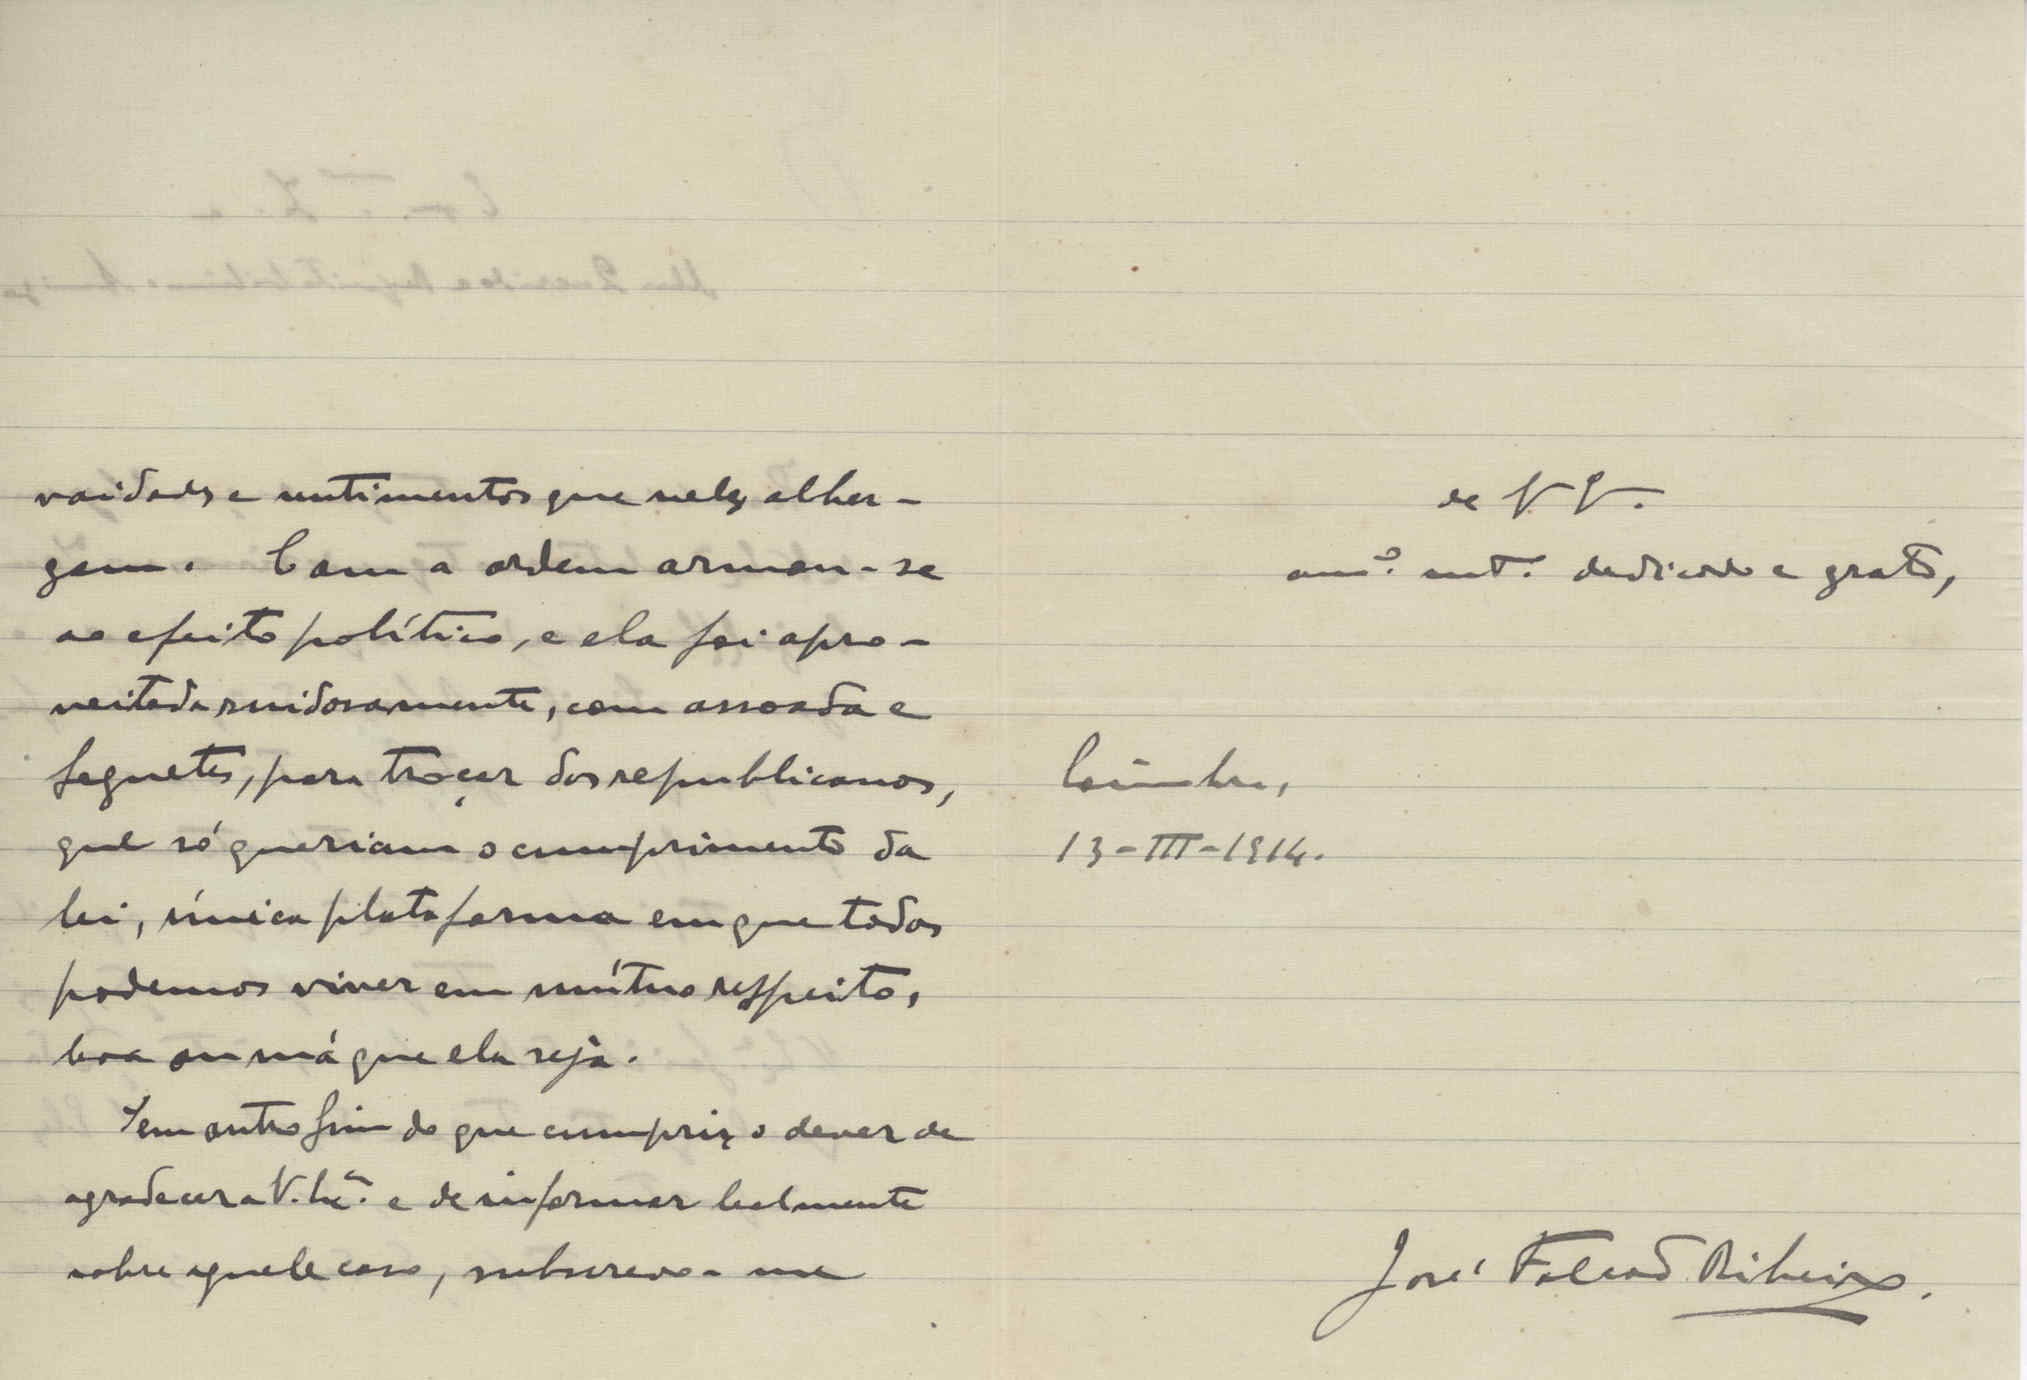 vaidades e sentimentos que neles alber-
gam. Com a ordem armou-se
ao efeito político, e ela foi apro-
veitada ruidosamente, com assoada e
foguetes, para troçar dos republicanos,
que só queriam o cumprimento da
lei, única plataforma em que todos
podemos viver em mútuo respeito,
boa ou má que ela seja.
Sem outro fim do que cumprir o dever de
agradecer a V. Ex.ª e de informar lealmente
sobre aquele caso, subscrevo-me
de V. 
am.º mt.º dedicado e grato,
Coimbra,
13-III-1914.
José Falcão Ribeiro.